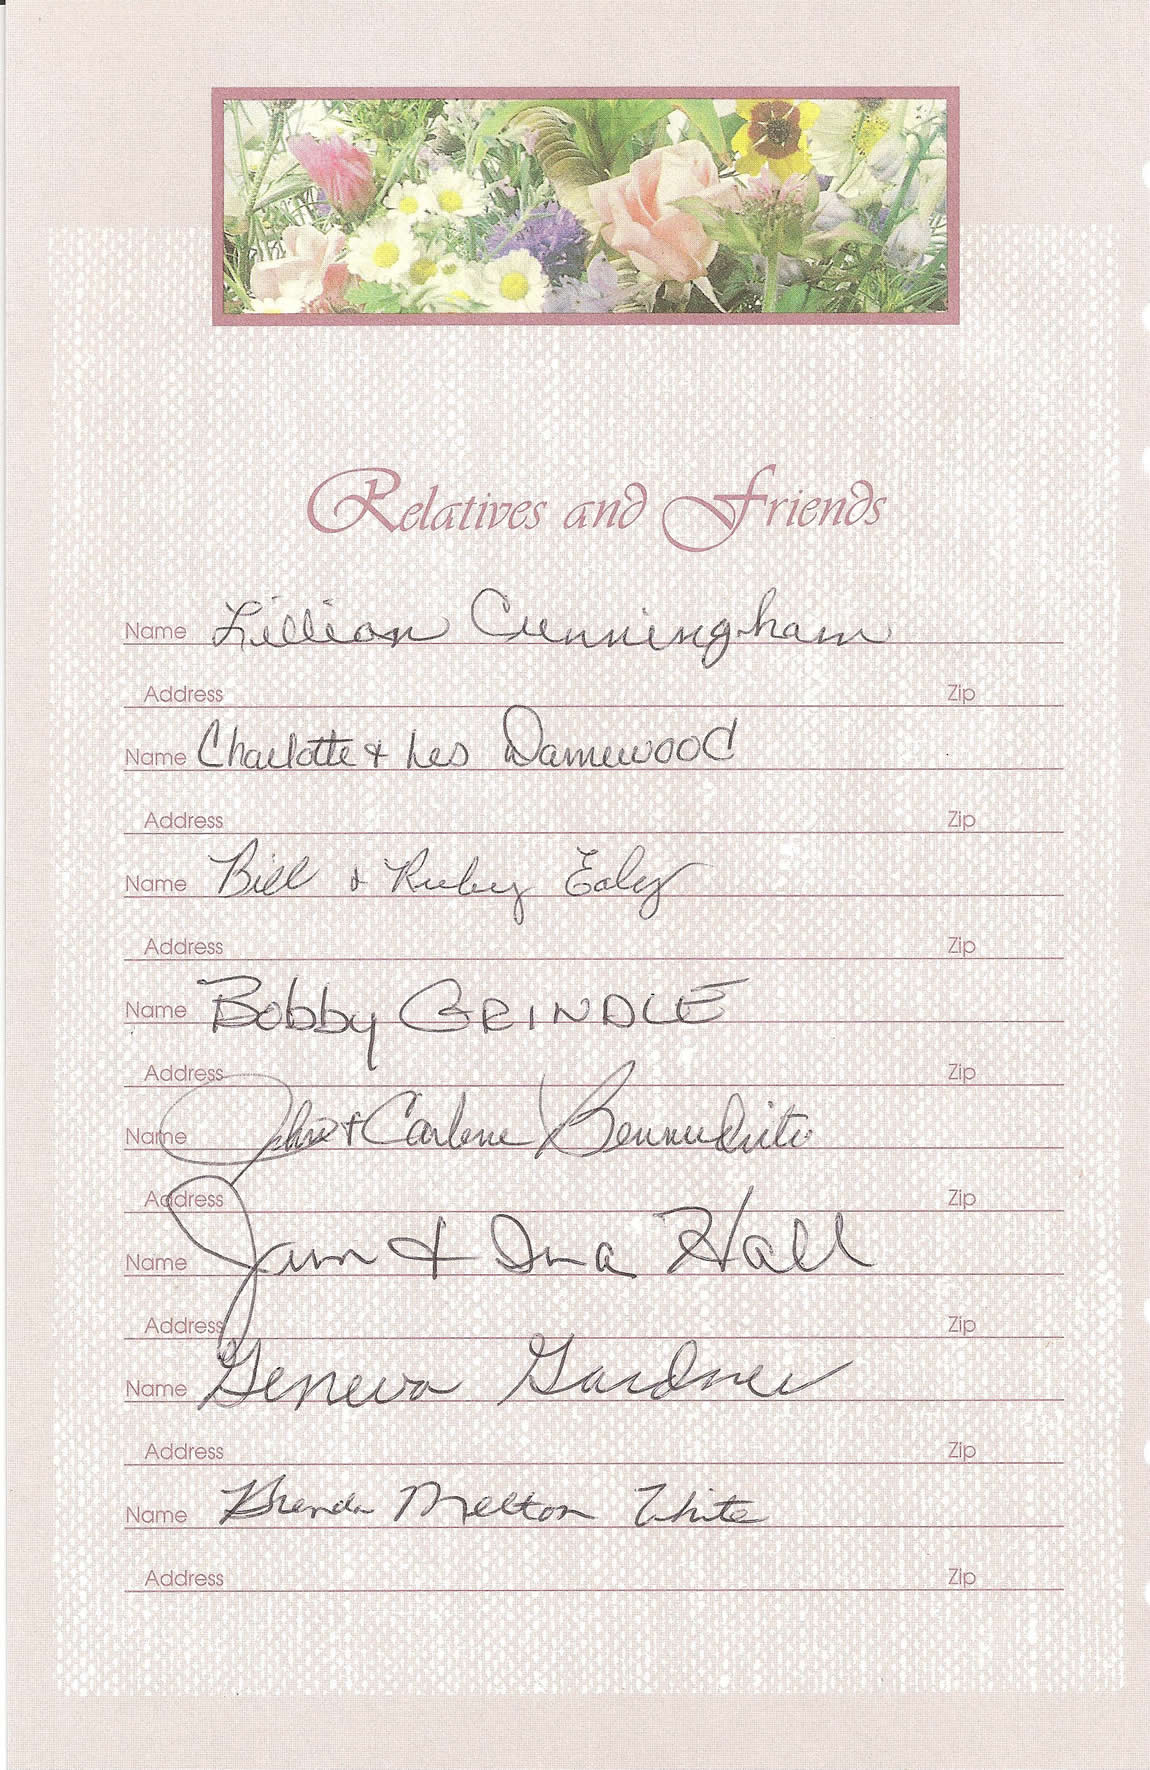 Relatives and Friends
Name Lillian Cunningham
Address Zip
Name Charlotte & Les Damewood
Address Zip
Name Bill & Ruby Ealey
Address Zip
Name Bobby GRINDLE
Address Zip
Name John & Carlene
Address Zip
Name Jim & Ina Hall
Address Zip
Name Geneva Gardner
Address Zip
Name Brenda Melton White
Address Zip